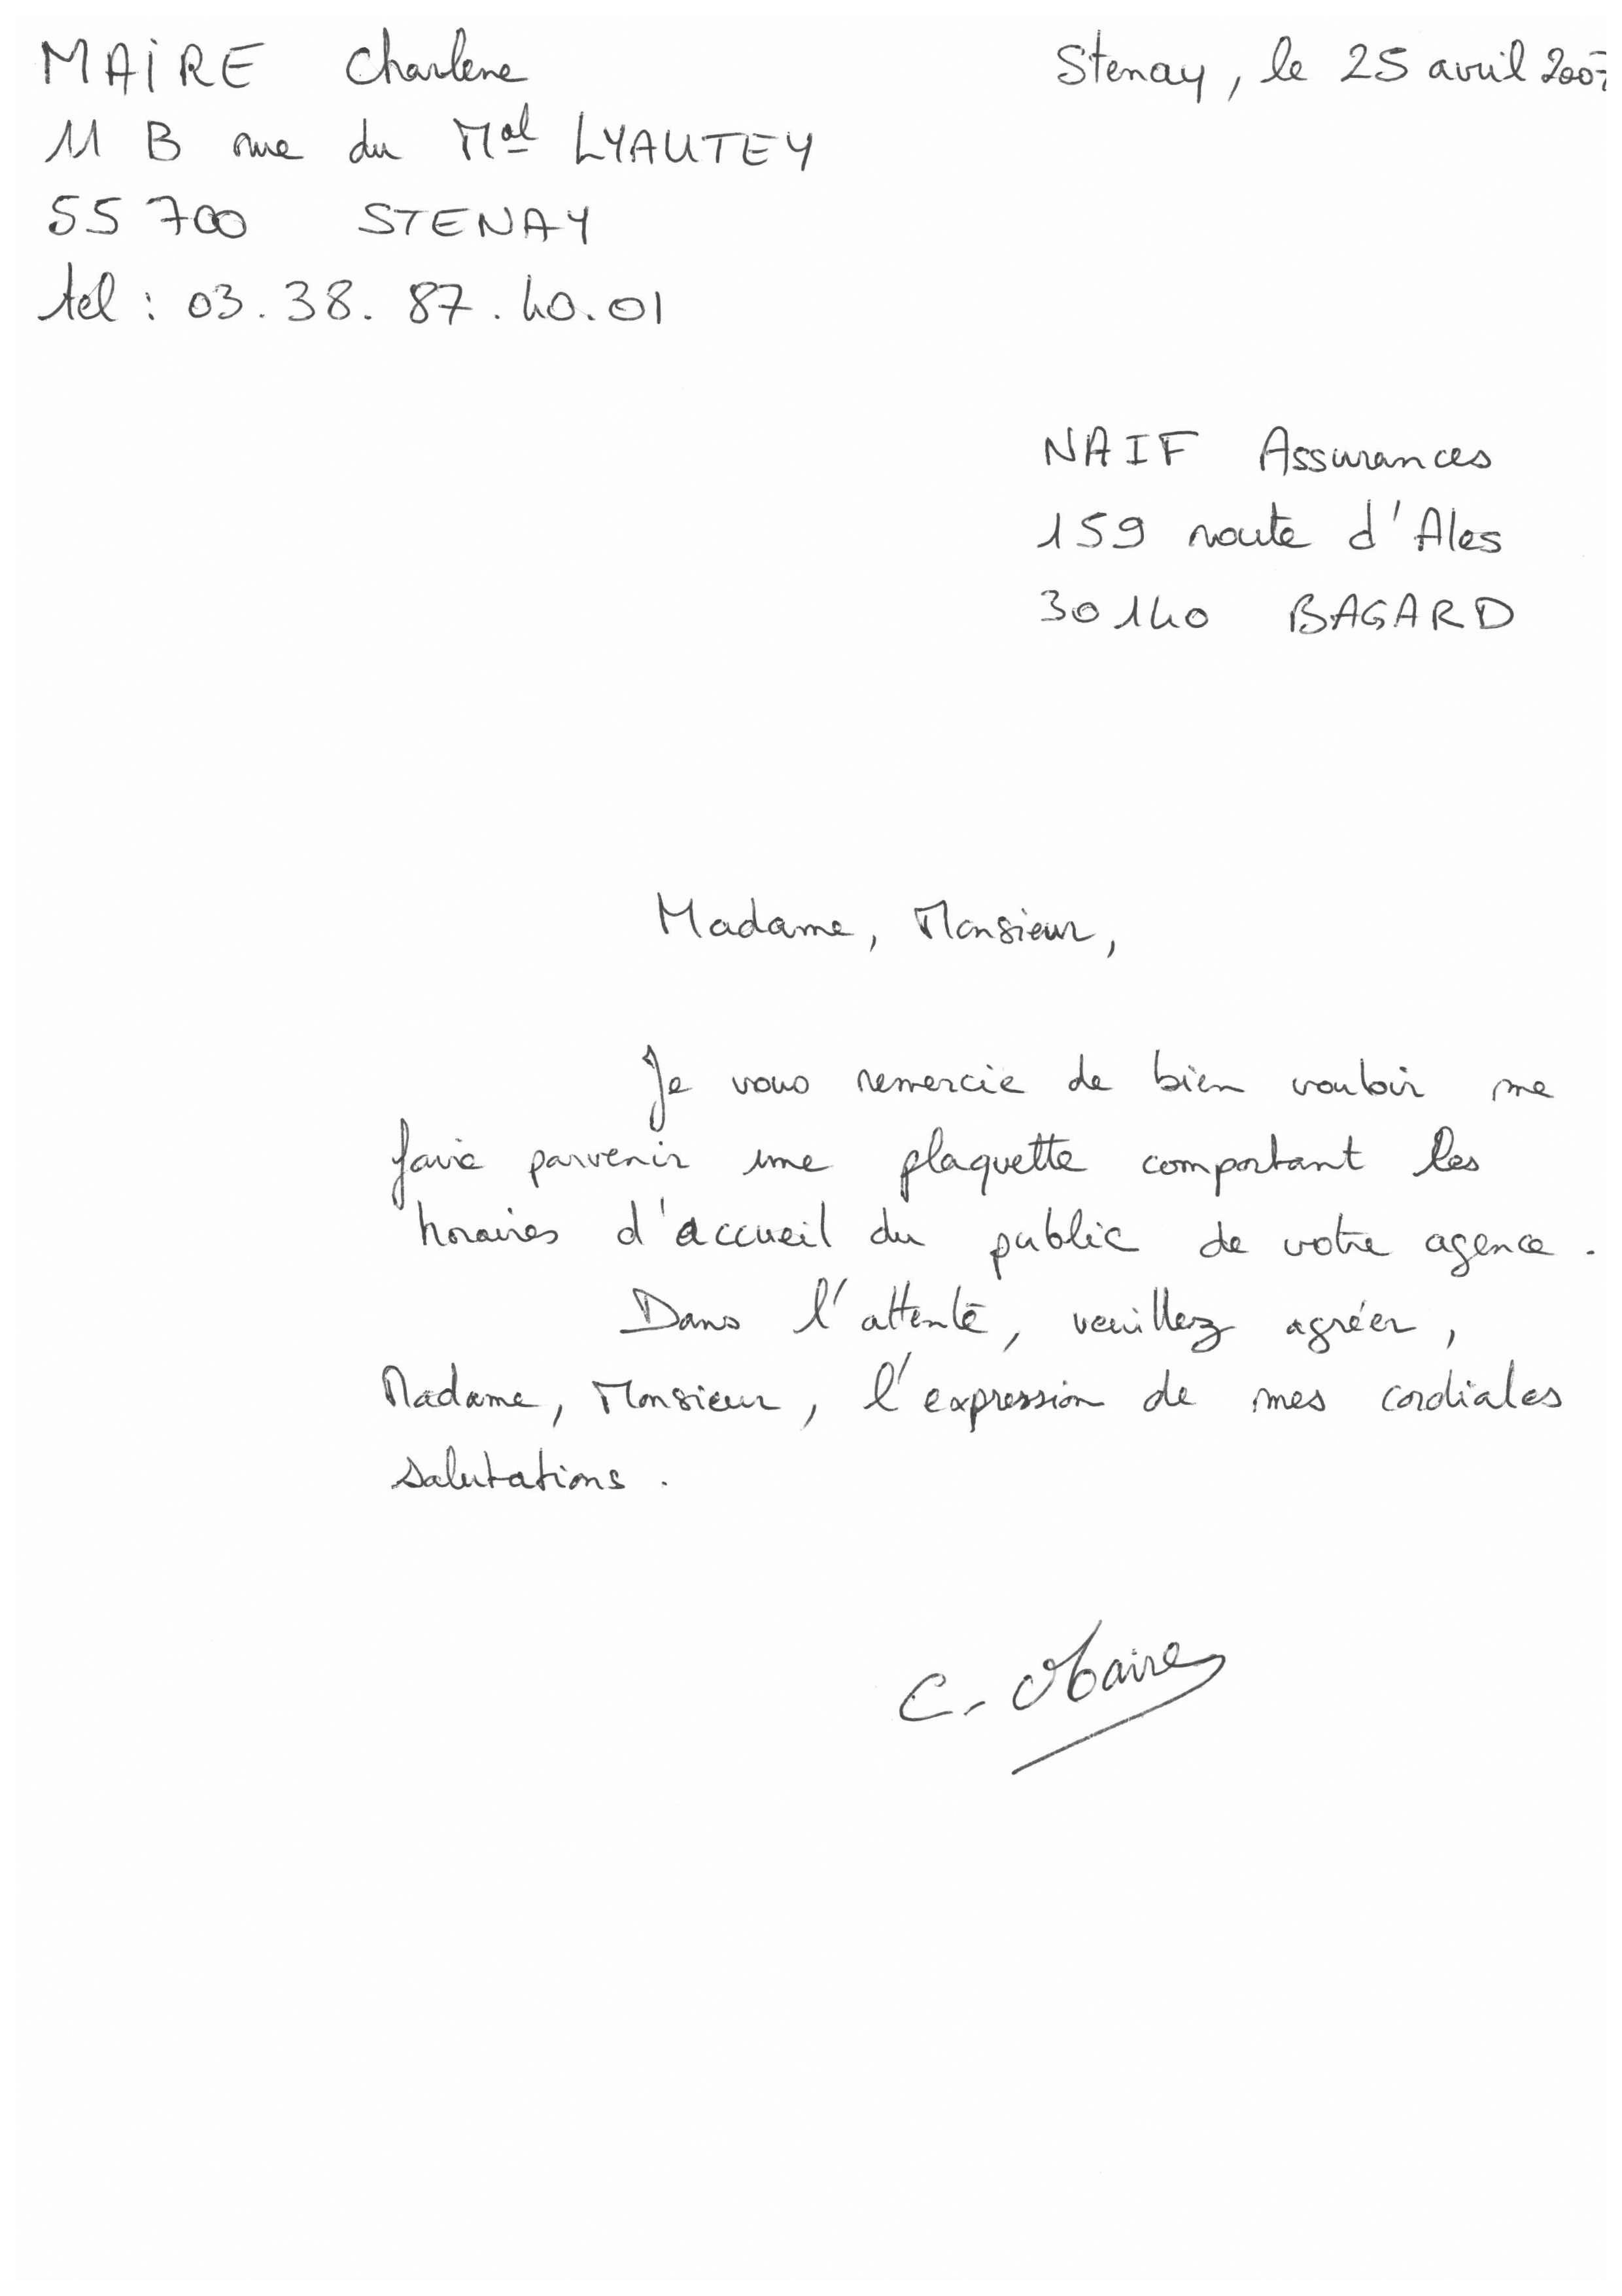 MAIRE Charlene
Stenay, le 25 avril 2007
11 B rue du Mal LYAUTEY
55 700 STENAY
tel : 03.38.87.40.01
NAIF Assurances
159 route d'Ales
30140 BAGARD
Madame, Monsieur,
Je vous remercie de bien vouloir me
faire parvenir une plaquette comportant les
horaires d'accueil du public de votre agence.
Dans l'attente, veuillez agréer,
Madame, Monsieur, l'expression de mes cordiales
salutations.
C. Maire